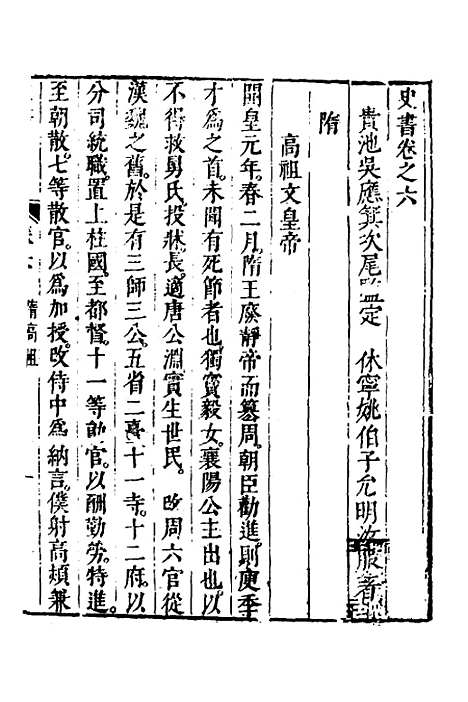 史書卷之六
貴池吳應箕次尾 定 休寧姚伯子允明 服著
隋
高祖文皇帝
開皇元年春二月隋王廢靜帝而篡周朝臣勸進則庾季
才為之首未聞有死節者也獨竇毅女襄陽公主出也以
不得救舅氏投牀長適唐公淵實生世民。改周六官從
漢魏之舊於是有三師三公五省二臺十一寺十二府以
分司統職置上柱國至都督十一等勳官以酬勤勞特進
至朝散七等散官以為加授改侍中為納言僕射高熲兼
隋高祖
一